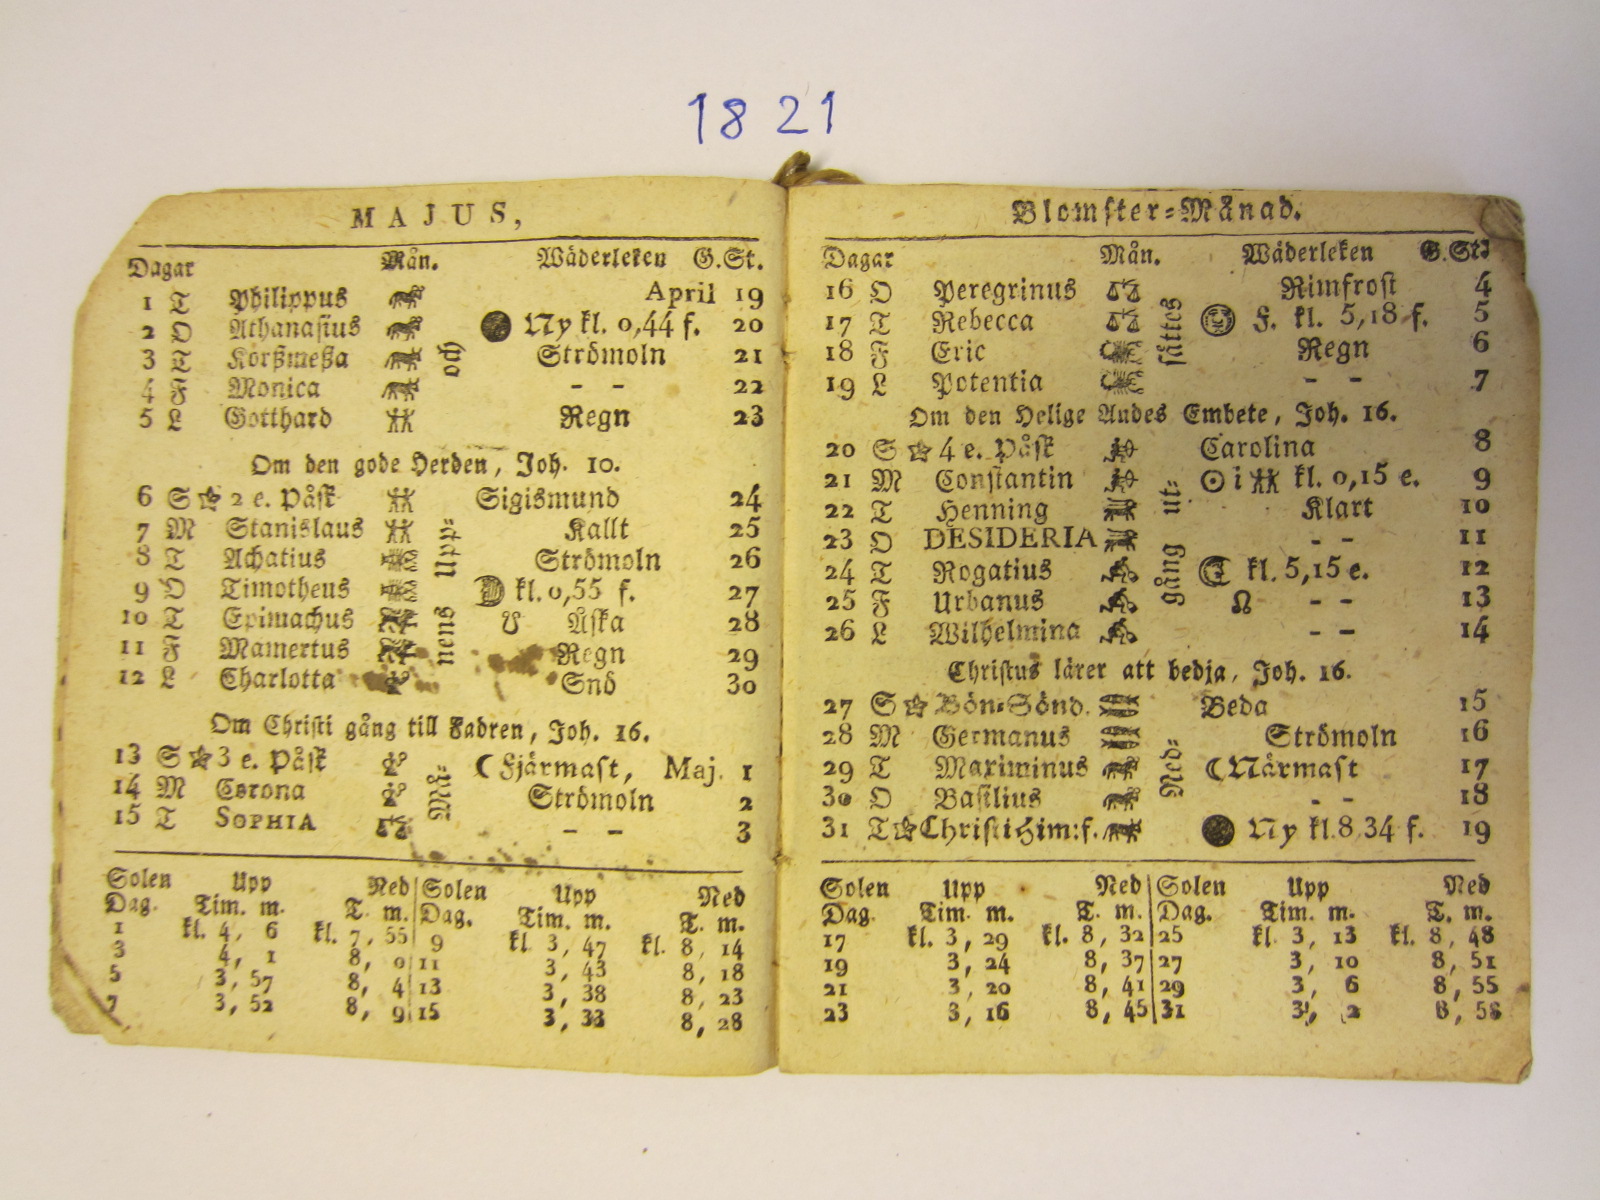 1821
MAJUS,
Dagar Mån. Wäderleken G.St.
1 T Philippus April 19
2 O Athanasius Ny kl. 0,44 f. 20
3 T Korßmeßa Strömoln 21
och
4 F Monica - - 22
5 L Gotthard Regn 23
Om den gode Herden, Joh. 10.
6 S 2 e. Påsk Sigismund 24
7 M Stanislaus Kallt 25
8 T Achatius Strömoln 26
upp-
9 O Timotheus kl. 0,55 f. 27
10 T Epimachus ☋ Åska 28
11 F Mamertus Regn 29
nens
12 L Charlotta Snö 30
Om Christi gång till Fadren, Joh. 16.
13 S 3 e. Påsk ☾ Fjärmast, Maj. 1
14 M Corona Strömoln 2
Må-
15 T SOPHIA - - 3
Solen Upp Ned Solen Upp Ned
Dag. Tim. m. T. m. Dag. Tim. m. T. m.
1 kl. 4, 6 kl. 7, 55 9 kl 3, 47 kl. 8, 14
3 4, 1 8, 0 11 3, 43 8, 18
5 3, 57 8, 4 13 3, 38 8, 23
7 3, 52 8, 9 15 3, 33 8, 28
Blomster-Månad.
Dagar Mån. Wäderleken G.St.
16 O Peregrinus Rimfrost 4
17 T Rebecca F. kl. 5,18 f. 5
sättes
18 F Eric Regn 6
19 L Potentia - - 7
Om den Helige Andes Embete, Joh. 16.
20 S 4 e. Påsk Carolina 8
21 M Constantin ☉ i ♊ kl. 0,15 e. 9
ut-
22 T Henning Klart 10
23 O DESIDERIA - - 11
24 T Rogatius kl. 5,15 e. 12
gång
25 F Urbanus ☊ - - 13
26 L Wilhelmina - - 14
Christus lärer att bedja, Joh. 16.
27 S Bön-Sönd. Beda 15
28 M Germanus Strömoln 16
29 T Maximinus ☾ Närmast 17
Ned-
30 O Basilius - - 18
31 T Christi Him:f. Ny kl. 8 34 f. 19
Solen Upp Ned Solen Upp Ned
Dag. Tim. m. T. m. Dag. Tim. m. T. m.
17 kl. 3, 29 kl. 8, 32 25 kl 3, 13 kl. 8, 48
19 3, 24 8, 37 27 3, 10 8, 51
21 3, 20 8, 41 29 3, 6 8, 55
23 3, 16 8, 45 31 3, 2 8, 58